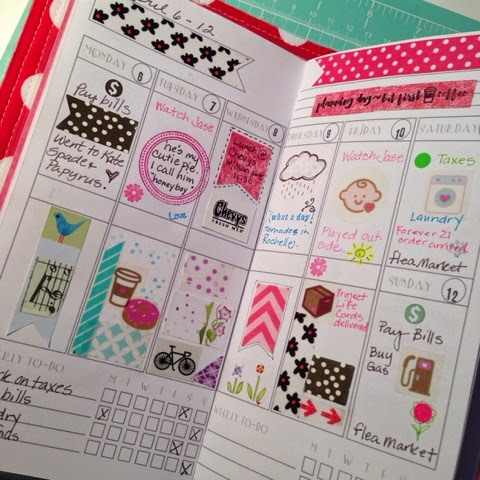 6-12
MONDAY 6
Pay bills
Went to Kate
Spade &
Papyrus.
TUESDAY 7
Watch Jase
he's my
cutie pie.
I call him
honeyboy
Love
WEDNESDAY 8
Lunch @
Chevys
w/
CHEVYS
FRESH MEX
planning day but first coffee
THURSDAY 9
[what a day!
tornados in
Rochelle].
FRIDAY 10
Watch Jase
Played out
side
Project
Life
Cards
delivered
SATURDAY
Taxes
Laundry
Forever 21
order arrived
flea Market
SUNDAY 12
Pay Bills
Buy
Gas
flea Market
KLY TO-DO
M T W T F S S
k on taxes
bills
dry
nds
WEEKLY TO-DO
M T W T F S S